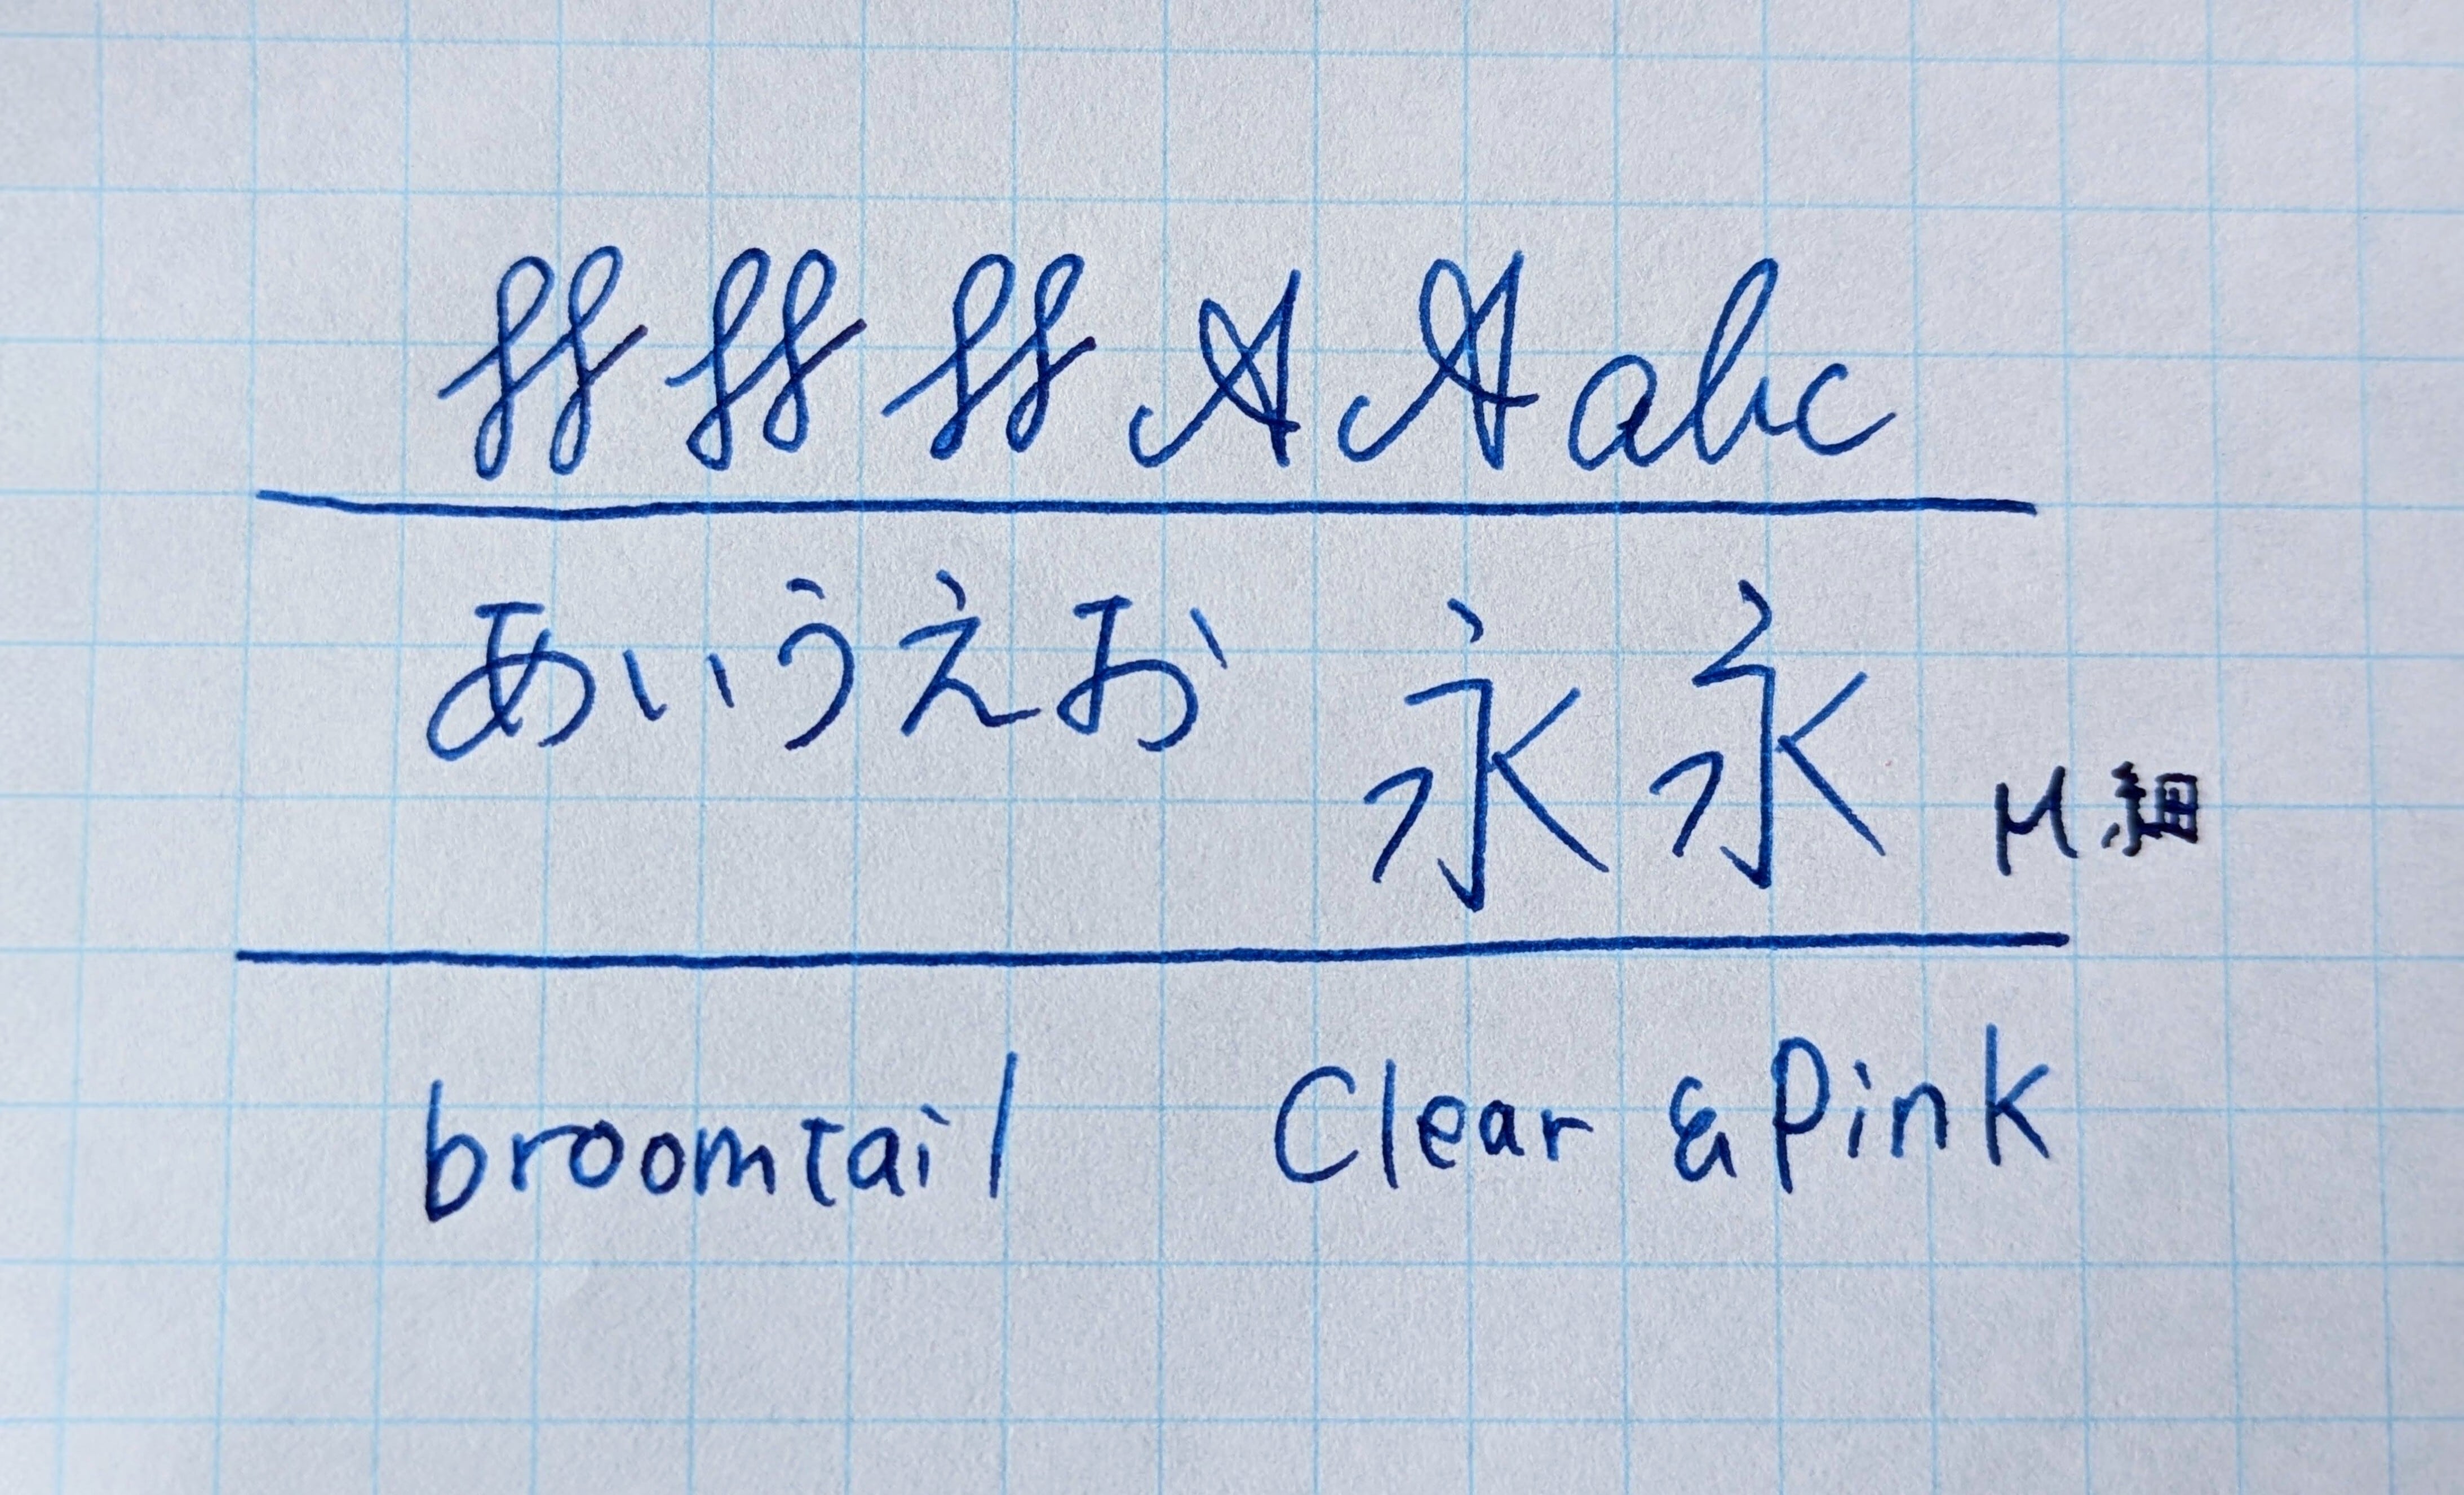 ff ff ff A A abc
あいうえお 永永 M 細
broomtail Clear & Pink